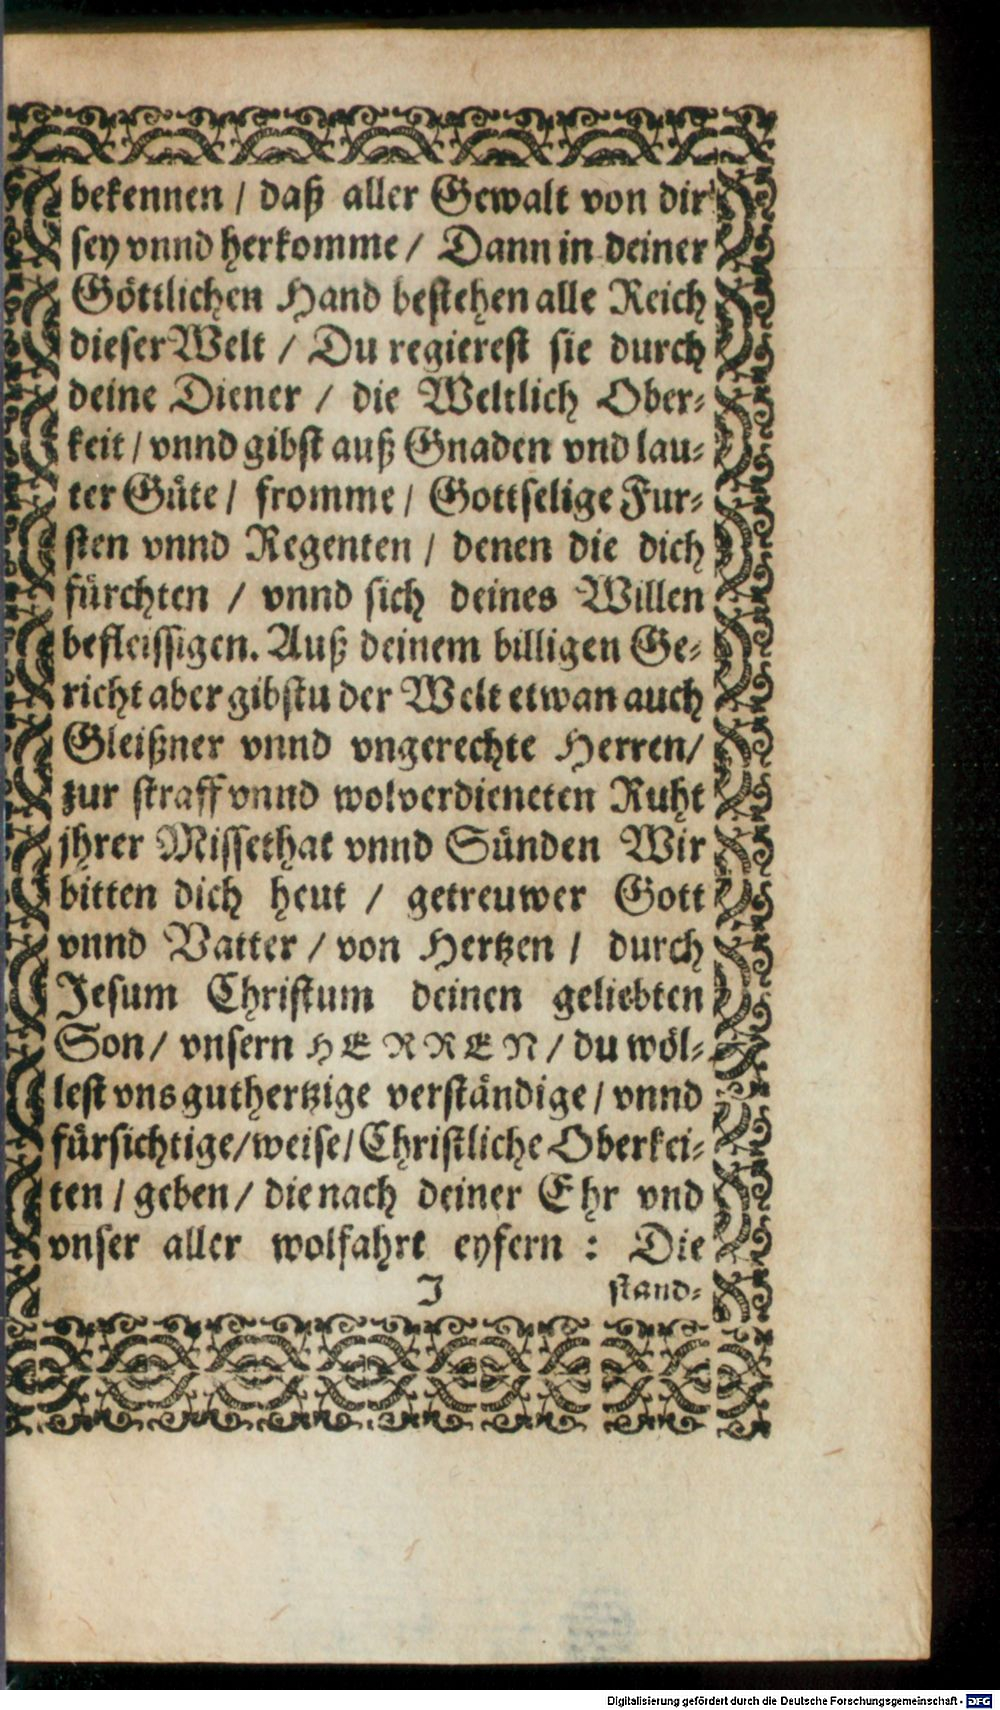 bekennen / daß aller Gewalt von dir
sey vnnd herkomme / Dann in deiner
Göttlichen Hand bestehen alle Reich
dieser Welt / Du regierest sie durch
deine Diener / die Weltlich Ober-
keit / vnnd gibst auß Gnaden vnd lau-
ter Güte / fromme / Gottselige Fur-
sten vnnd Regenten / denen die dich
fürchten / vnnd sich deines Willen
befleissigen. Auß deinem billigen Ge-
richt aber gibstu der Welt etwan auch
Gleißner vnnd vngerechte Herren /
zur straff vnnd wolverdieneten Ruht
jhrer Missethat vnnd Sünden Wir
bitten dich heut / getreuwer Gott
vnnd Vatter / von Hertzen / durch
Jesum Christum deinen geliebten
Son / vnsern HERREN / du wöl-
lest vns guthertzige verständige / vnnd
fürsichtige / weise / Christliche Oberkei-
ten / geben / die nach deiner Ehr vnd
vnser aller wolfahrt eyfern : Die
J stand-
Digitalisierung gefördert durch die Deutsche Forschungsgemeinschaft - DFG